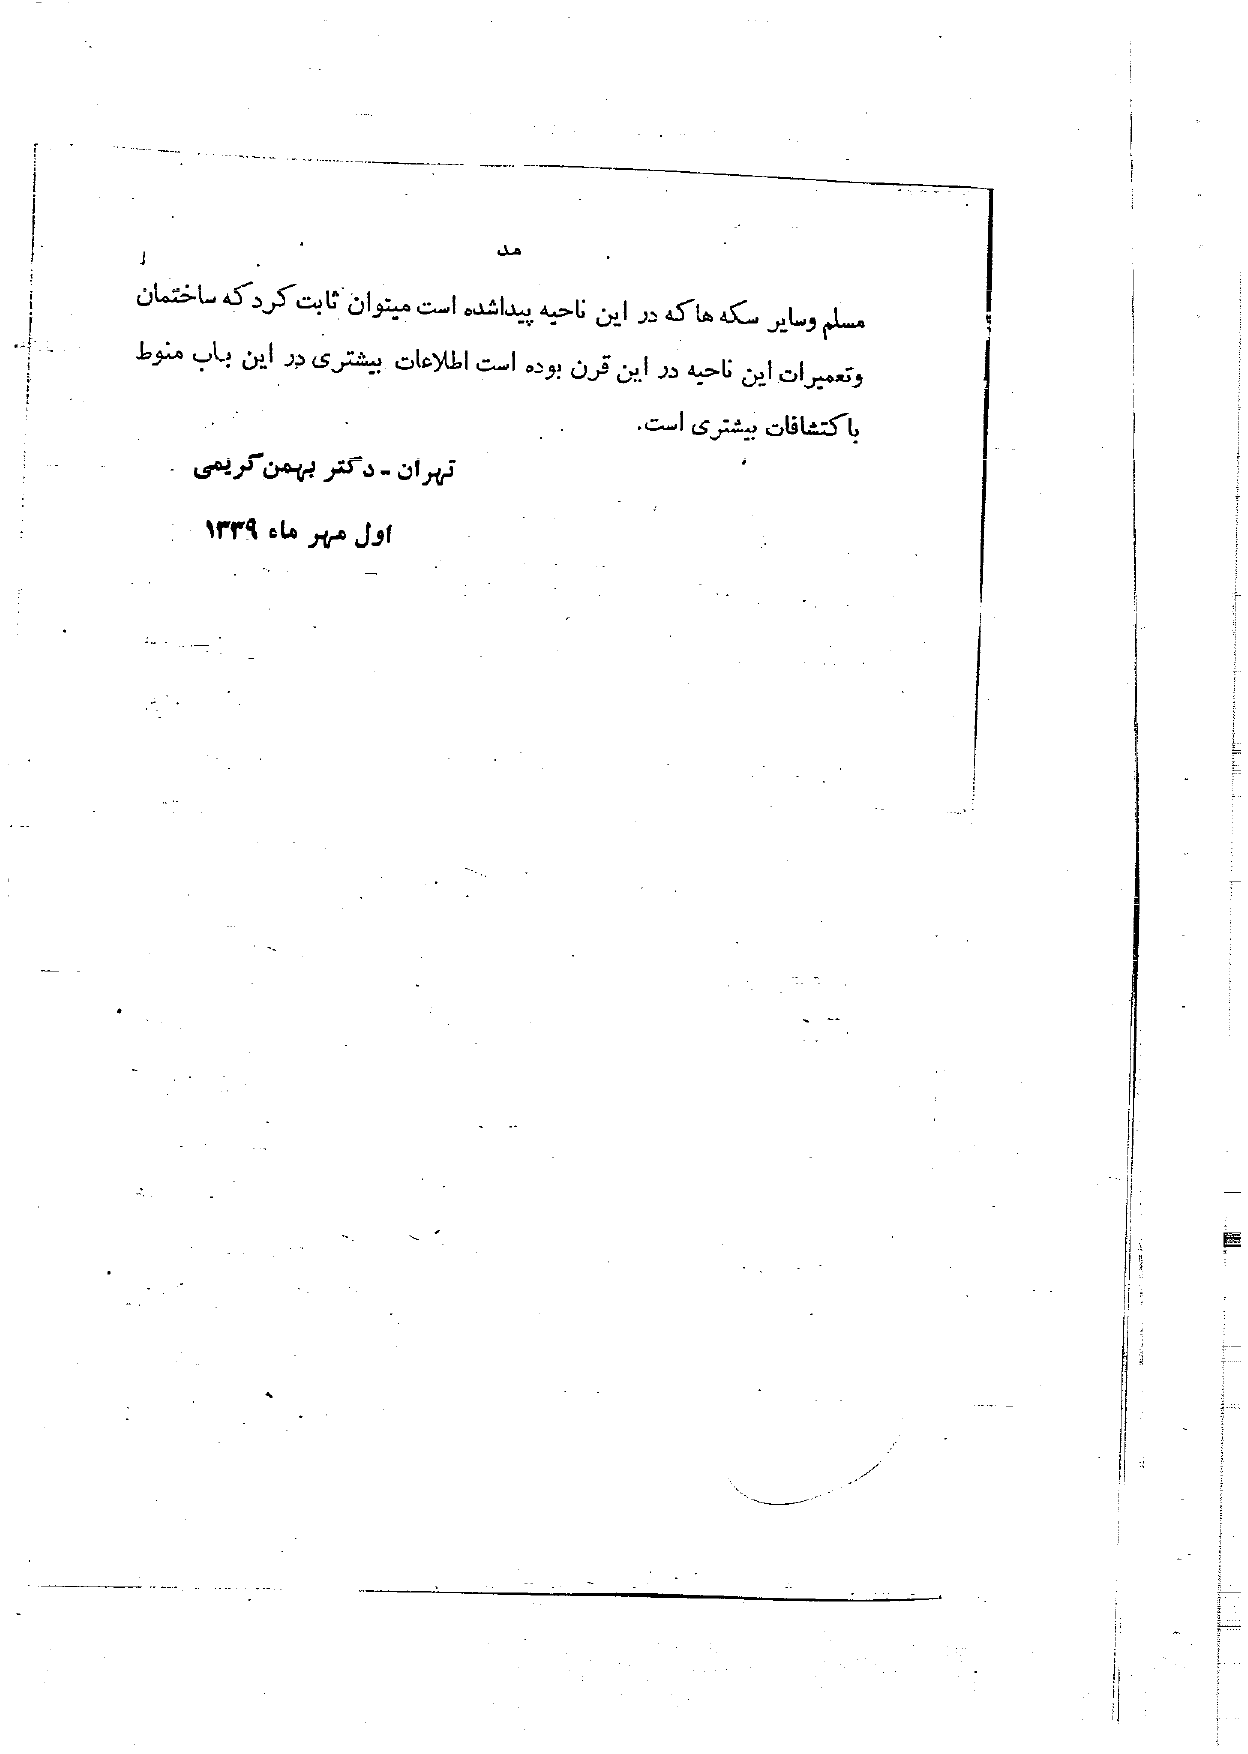 مد
مسلم وسایر سکه ها که در این ناحیه پیداشده است میتوان ثابت کرد که ساختمان
وتعمیرات این ناحیه در این قرن بوده است اطلاعات بیشتری در این باب منوط
با کتشافات بیشتری است.
تهران - دکتر بهمن کریمی
اول مهر ماه ۱۳۳۹